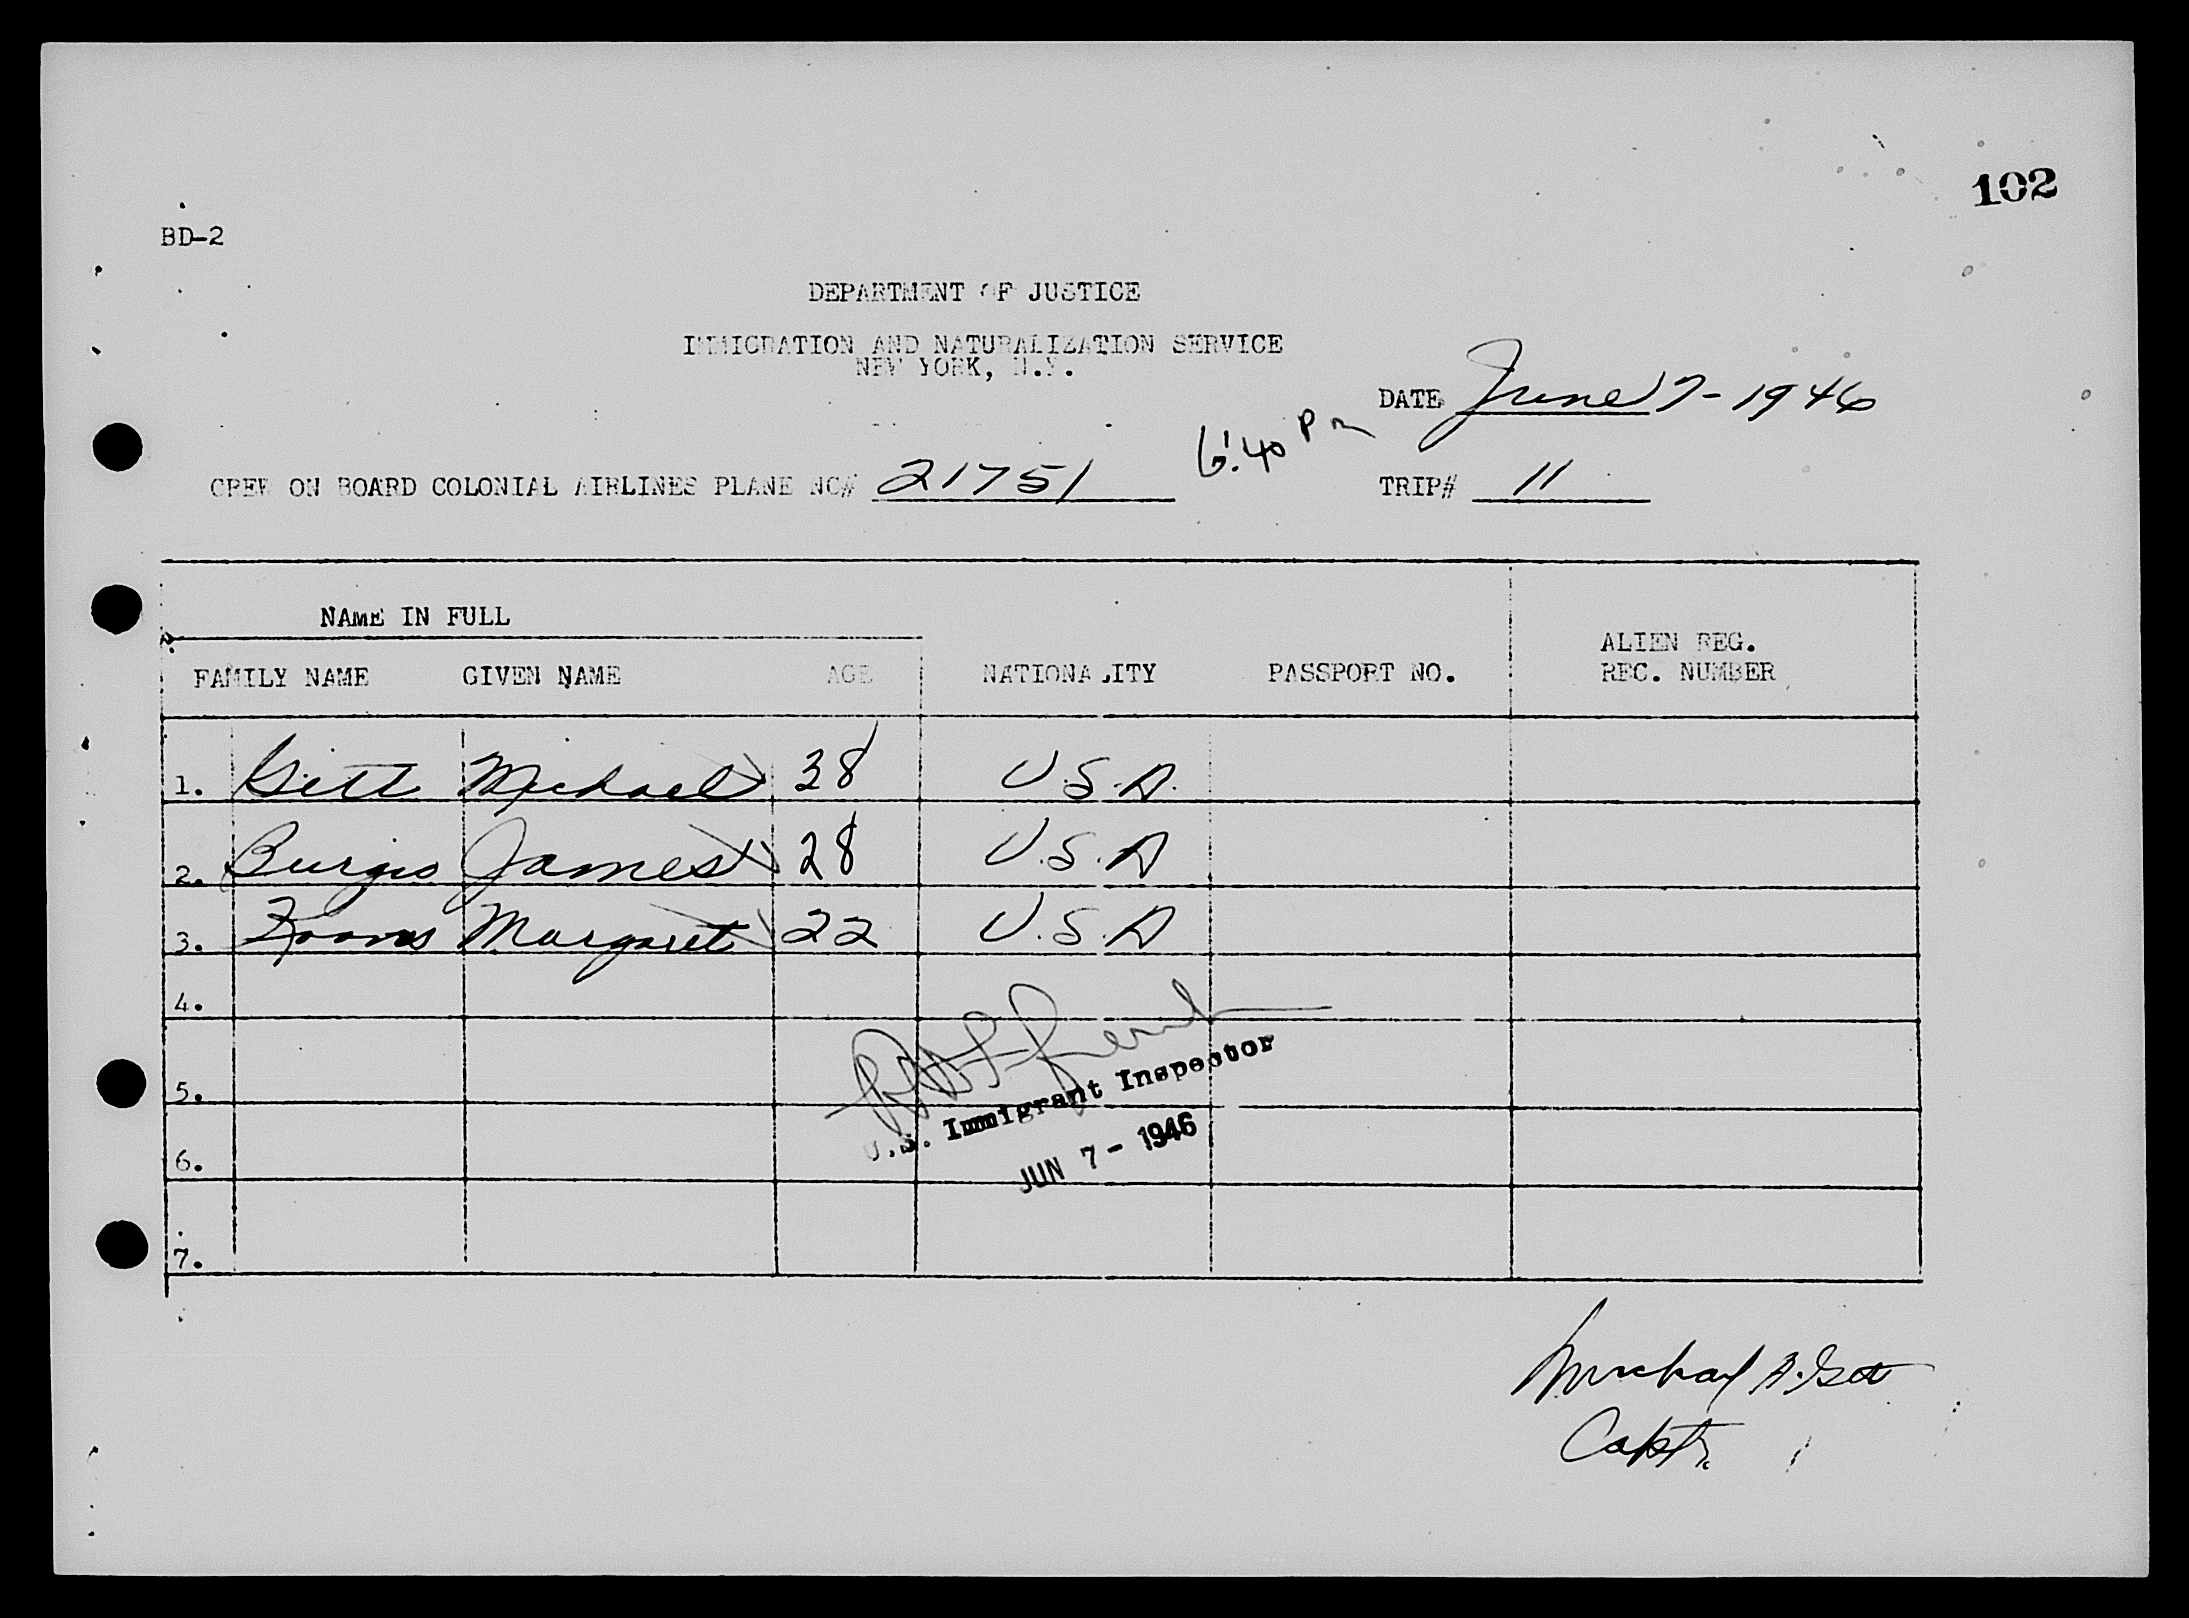 102
BD-2
DEPARTMENT OF JUSTICE
IMMIGRATION AND NATURALIZATION SERVICE
NEW YORK, N.Y.
DATE June 7-1946
6:40 PM
CREW ON BOARD COLONIAL AIRLINES PLANE NO# 21751 TRIP# 11
NAME IN FULL
ALIEN REG.
FAMILY NAME GIVEN NAME AGE NATIONALITY PASSPORT NO. REC. NUMBER
1. Gitt Michael 38 U.S.A.
2. Burgis James 28 U.S.A
3. Margaret 22 U.S.A
4.
5.
U.S. Immigrant Inspector
JUN 7 - 1946
6.
7.
Michael A. Gitt
Capt.